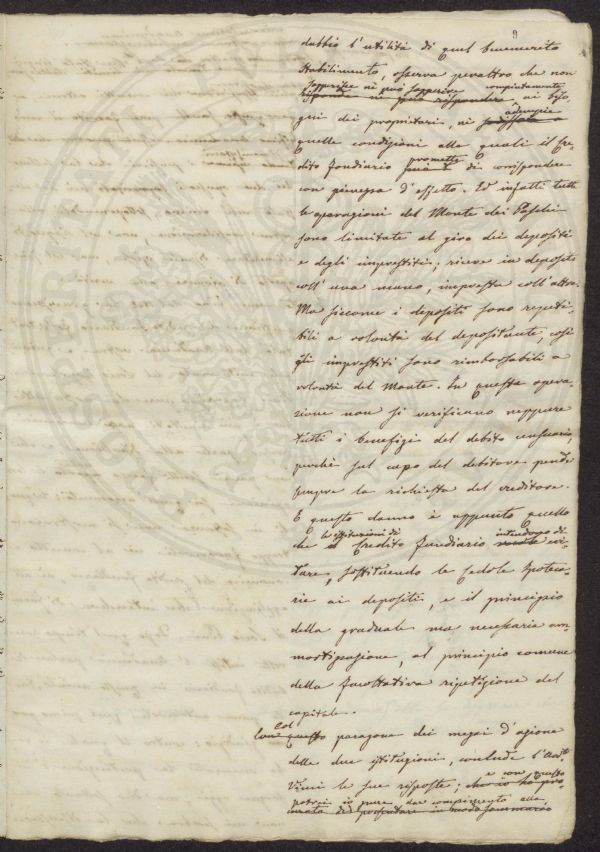 9
dubbio l'utilità di quel benemerito
stabilimento, osserva peraltro che non
supperisce nè può supperire compiutamente
risponde nè può rispondere ai biso,
gni dei proprietari, nè adempie
sodisfare a
quelle condizioni alle quali il Cre,
dito fondiario promette di corrispondere
con pienezza d'effetto. Ed infatti tutte
le operazioni del Monte dei Paschi
sono limitate al giro dei depositi
e degli imprestiti; riceve in deposito
coll'una mano, impresta coll'altra.
Ma siccome i depositi sono repeti,
bili a volontà del depositante, così
gli imprestiti sono rimborsabili a
volontà del Monte. In questa opera,
zione non si verificano neppure
tutti i benefizi del debito censuario,
perchè sul capo del debitore pende
sempre la richiesta del creditore.
E questo danno è appunto quello
le istituzioni di intendono di
che il Credito fondiario vuole evi,
tare, sostituendo le Cedole ipoteca,
rie ai depositi, e il principio
della graduale ma necessaria am,
mortizzazione, al principio comune
della facoltativa ripetizione del
capitale.
Col
Con questo paragone dei mezzi d'azione
delle due istituzioni, conclude l'Avv.to
Vinci le sue risposte; e con questo
che io ho pro,
potrei io pure dar compimento alla
curato di presentare in modo sommario